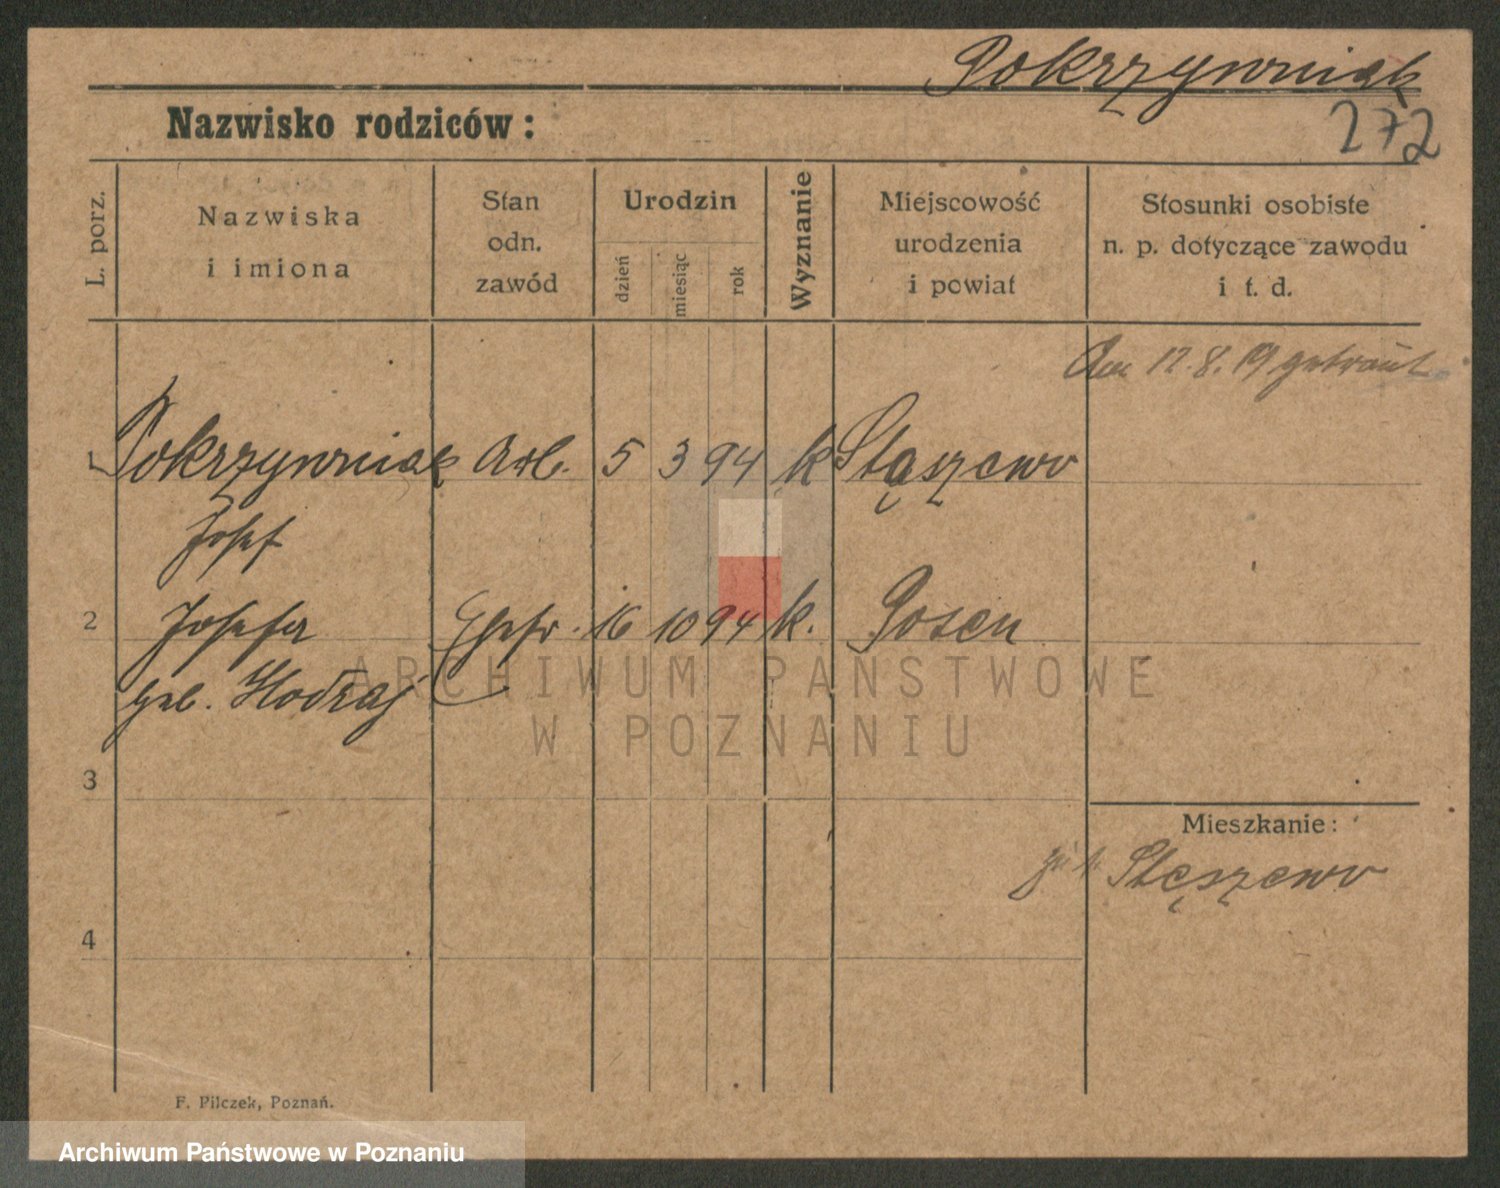 Pokrzywniak
272
Nazwisko rodziców:
L. porz.
Nazwiska
i imiona
Stan
odn.
zawód
Urodzin
dzień
miesiąc
rok
Wyznanie
Miejscowość
urodzenia
i powiat
Stosunki osobiste
n. p. dotyczące zawodu
i t. d.
Am 12.8.19 getraut
1 Pokrzywniak Arb. 5 3 94 k Stąszewo
Josef
2 Josefa Ehefr. 16 10 94 k. Posen
geb. Hodzaj
3
Mieszkanie:
Stęszewo
4
F. Pilczek, Poznań.
ARCHIWUM PAŃSTWOWE
W POZNANIU
Archiwum Państwowe w Poznaniu